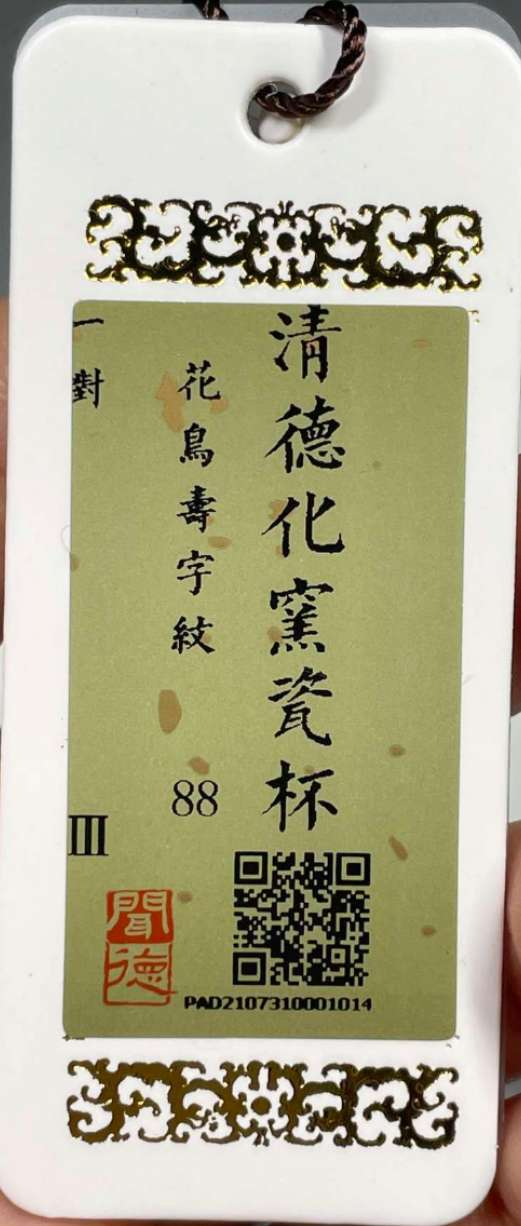 清德化窯瓷杯
花鳥壽字紋
88
一對
III
聞德
PAD2107310001014